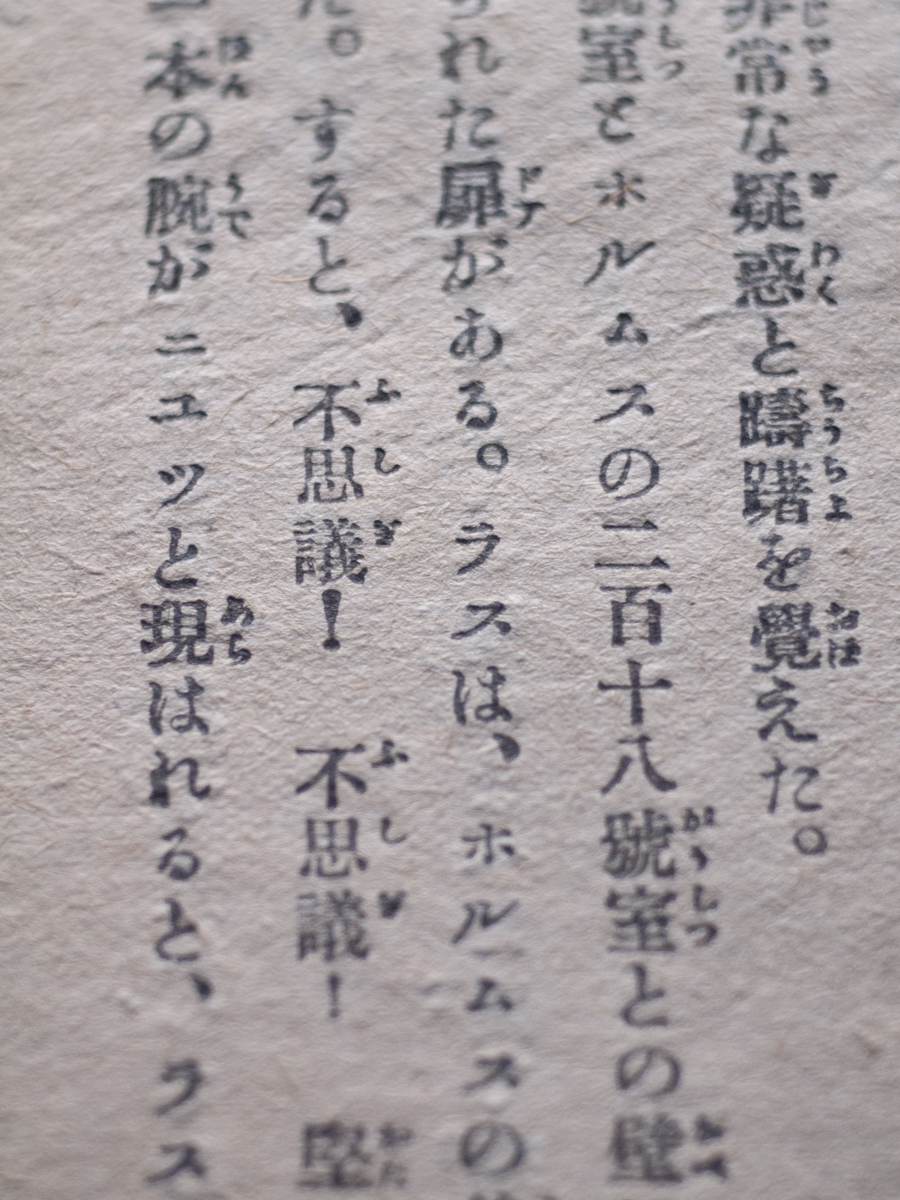 非常な疑惑と躊躇を覺えた。
號室とホルムスの二百十八號室との壁
られた扉がある。ラスは、ホルムスの
た。すると、不思議！　不思議！　堅
一本の腕がニユツと現はれると、ラス